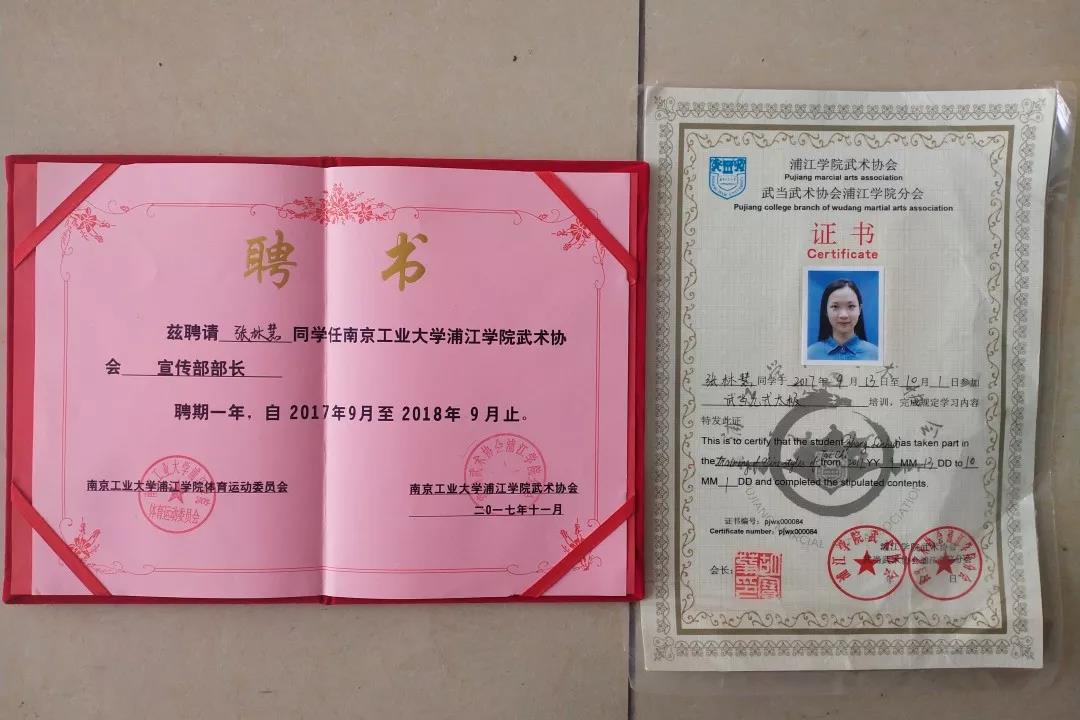 聘 书
兹聘请 张林慧 同学任南京工业大学浦江学院武术协
会 宣传部部长
聘期一年，自 2017年9月至 2018年 9月止。
南京工业大学浦江学院体育运动委员会
南京工业大学浦江学院武术协会
二〇一七年十一月
浦江学院武术协会
Pujiang marcial arts association
武当武术协会浦江学院分会
Pujiang college branch of wudang martial arts association
证 书
Certificate
张林慧 同学于 2017 年 9 月 13 日至 10 月 1 日参加
武当九式太极 培训，完成规定学习内容
特发此证
This is to certify that the student has taken part in
the from 2017 YY MM 13 DD to 10
MM 1 DD and completed the stipulated contents.
证书编号：pjwx000084
Certificate number：pjwx000084
会长：